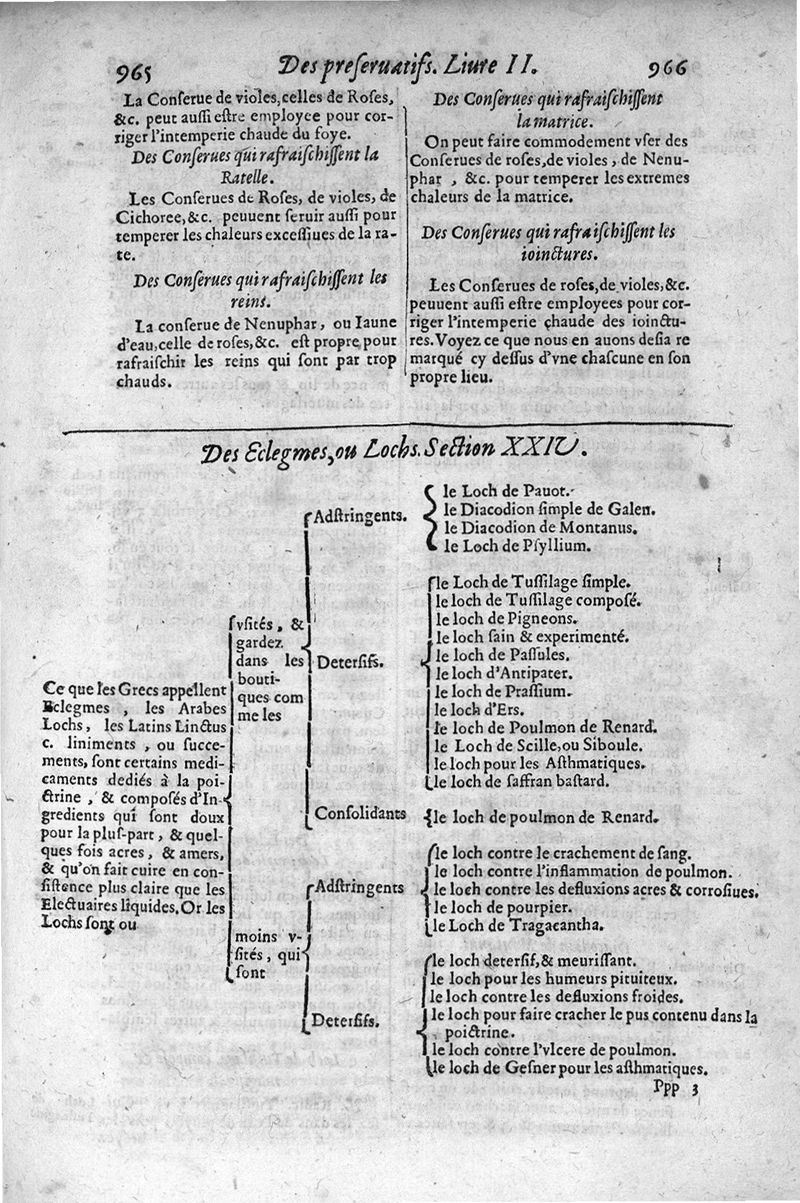 965 Des preseruatifs. Liure II. 966
La Conserue de violes, celles de Roses,
&c. peut aussi estre employee pour cor-
riger l'intemperie chaude du foye.
Des Conserues qui rafraischissent la
Ratelle.
Les Conserues de Roses, de violes, de
Cichoree, &c. peuuent seruir aussi pour
temperer les chaleurs excessiues de la ra-
te.
Des Conserues qui rafraischissent les
reins.
La conserue de Nenuphar, ou Iaune
d'eau, celle de roses, &c. est propre pour
rafraischir les reins qui sont par trop
chauds.
Des Conserues qui rafraischissent
la matrice.
On peut faire commodement vser des
Conserues de roses, de violes, de Nenu-
phar, &c. pour temperer les extremes
chaleurs de la matrice.
Des Conserues qui rafraischissent les
ioinctures.
Les Conserues de roses, de violes, &c.
peuuent aussi estre employees pour cor-
riger l'intemperie chaude des ioinctu-
res. Voyez ce que nous en auons desia re
marqué cy dessus d'vne chascune en son
propre lieu.
Des Eclegmes, ou Lochs. Section XXIV.
Ce que les Grecs appellent
Eclegmes, les Arabes
Lochs, les Latins Linctus
c. liniments, ou succe-
ments, sont certains medi-
caments dediés à la poi-
ctrine, & composés d'In-
gredients qui sont doux
pour la plus-part, & quel-
ques fois acres, & amers,
& qu'on fait cuire en con-
sistence plus claire que les
Electuaires liquides. Or les
Lochs sont ou
vsités, &
gardez
dans les
bouti-
ques com
me les
Adstringents.
le Loch de Pauot.
le Diacodion simple de Galen.
le Diacodion de Montanus.
le Loch de Psyllium.
Detersifs.
le Loch de Tussilage simple.
le loch de Tussilage composé.
le loch de Pigneons.
le loch sain & experimenté.
le loch de Passules.
le loch d'Antipater.
le loch de Prassium.
le loch d'Ers.
le loch de Poulmon de Renard.
le Loch de Scille, ou Siboule.
le loch pour les Asthmatiques.
le loch de saffran bastard.
Consolidants
le loch de poulmon de Renard.
moins v-
sités, qui
sont
Adstringents
le loch contre le crachement de sang.
le loch contre l'inflammation de poulmon.
le loch contre les defluxions acres & corrosiues.
le loch de pourpier.
le Loch de Tragacantha.
Detersifs.
le loch detersif, & meurissant.
le loch pour les humeurs pituiteux.
le loch contre les defluxions froides.
le loch pour faire cracher le pus contenu dans la
poictrine.
le loch contre l'vlcere de poulmon.
le loch de Gesner pour les asthmatiques.
Ppp 3